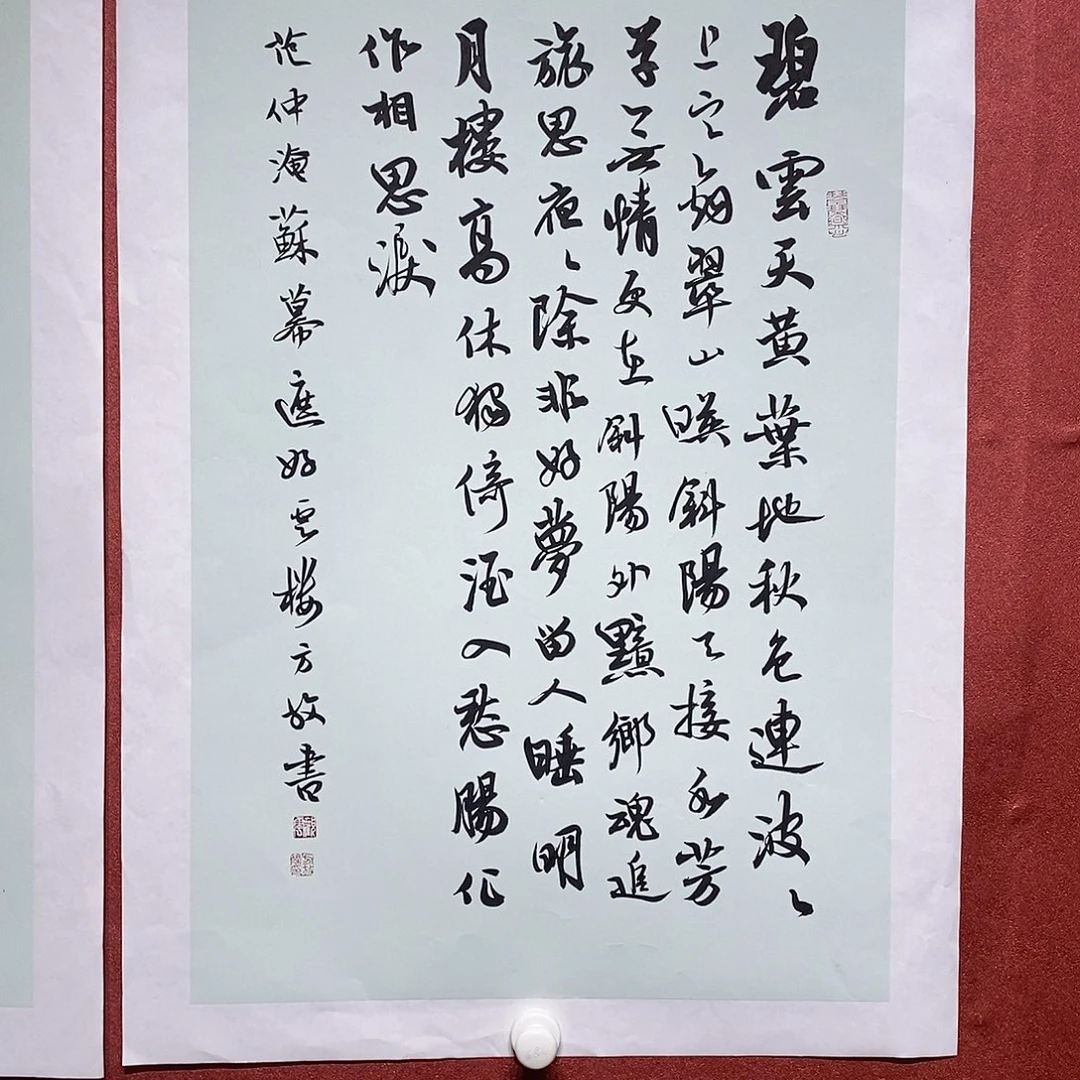 碧雲天黄葉地秋色連波〻
上寒烟翠山暎斜陽天接水芳
草無情更在斜陽外黯鄉魂追
旅思夜〻除非好夢留人睡明
月樓高休獨倚酒入愁腸化
作相思淚
范仲淹蘇幕遮好雲樓方書